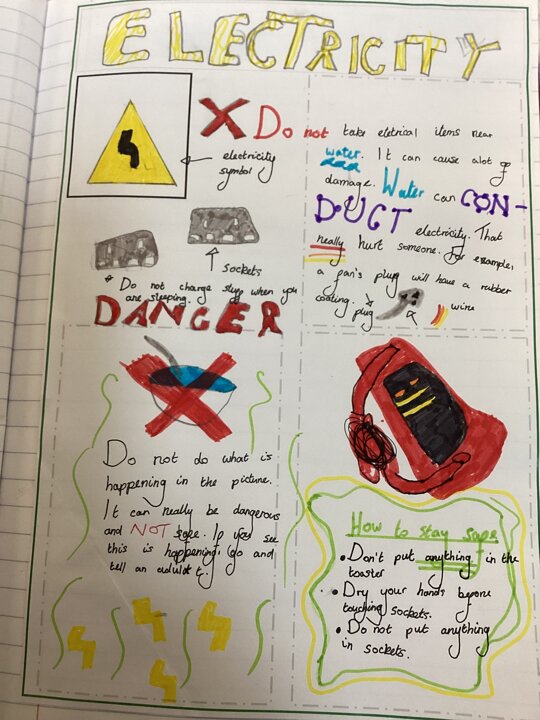 ELECTRICITY
electricity
symbol
sockets
* Do not charge stuff when you
are sleeping.
DANGER
X Do not take eletrical items near
water. It can cause alot of
damage. Water can CON-
DUCT electricity. That
really hurt someone. For example,
a fan's plug will have a rubber
coating.
plug
wire
Do not do what is
happening in the picture.
It can really be dangerous
and NOT safe. If you see
this is happening, go and
tell an
How to stay safe
• Don't put anything in the
toaster
• Dry your hands before
touching sockets.
• Do not put anything
in sockets.